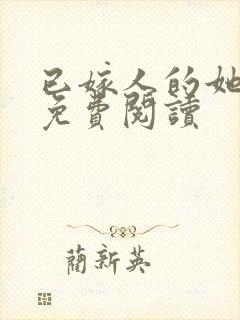 已嫁人的她
免費閱讀
藺新英